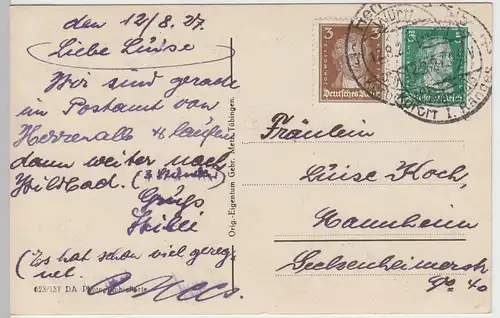 den 12/8. 27.
Liebe Luise
Wir sind gerade
im Postamt von
Herrenalb & laufen
dann weiter nach
Wildbad. (3 Stunden)
Gruß
Willi
(Es hat schon viel gereg-
net.
623/137 DA Photographiekarte
Orig.-Eigentum Gebr. Metz, Tübingen.
3 3
Deutsches Reich
Fräulein
Luise Koch,
Mannheim
Seckenheimerstr
No 40